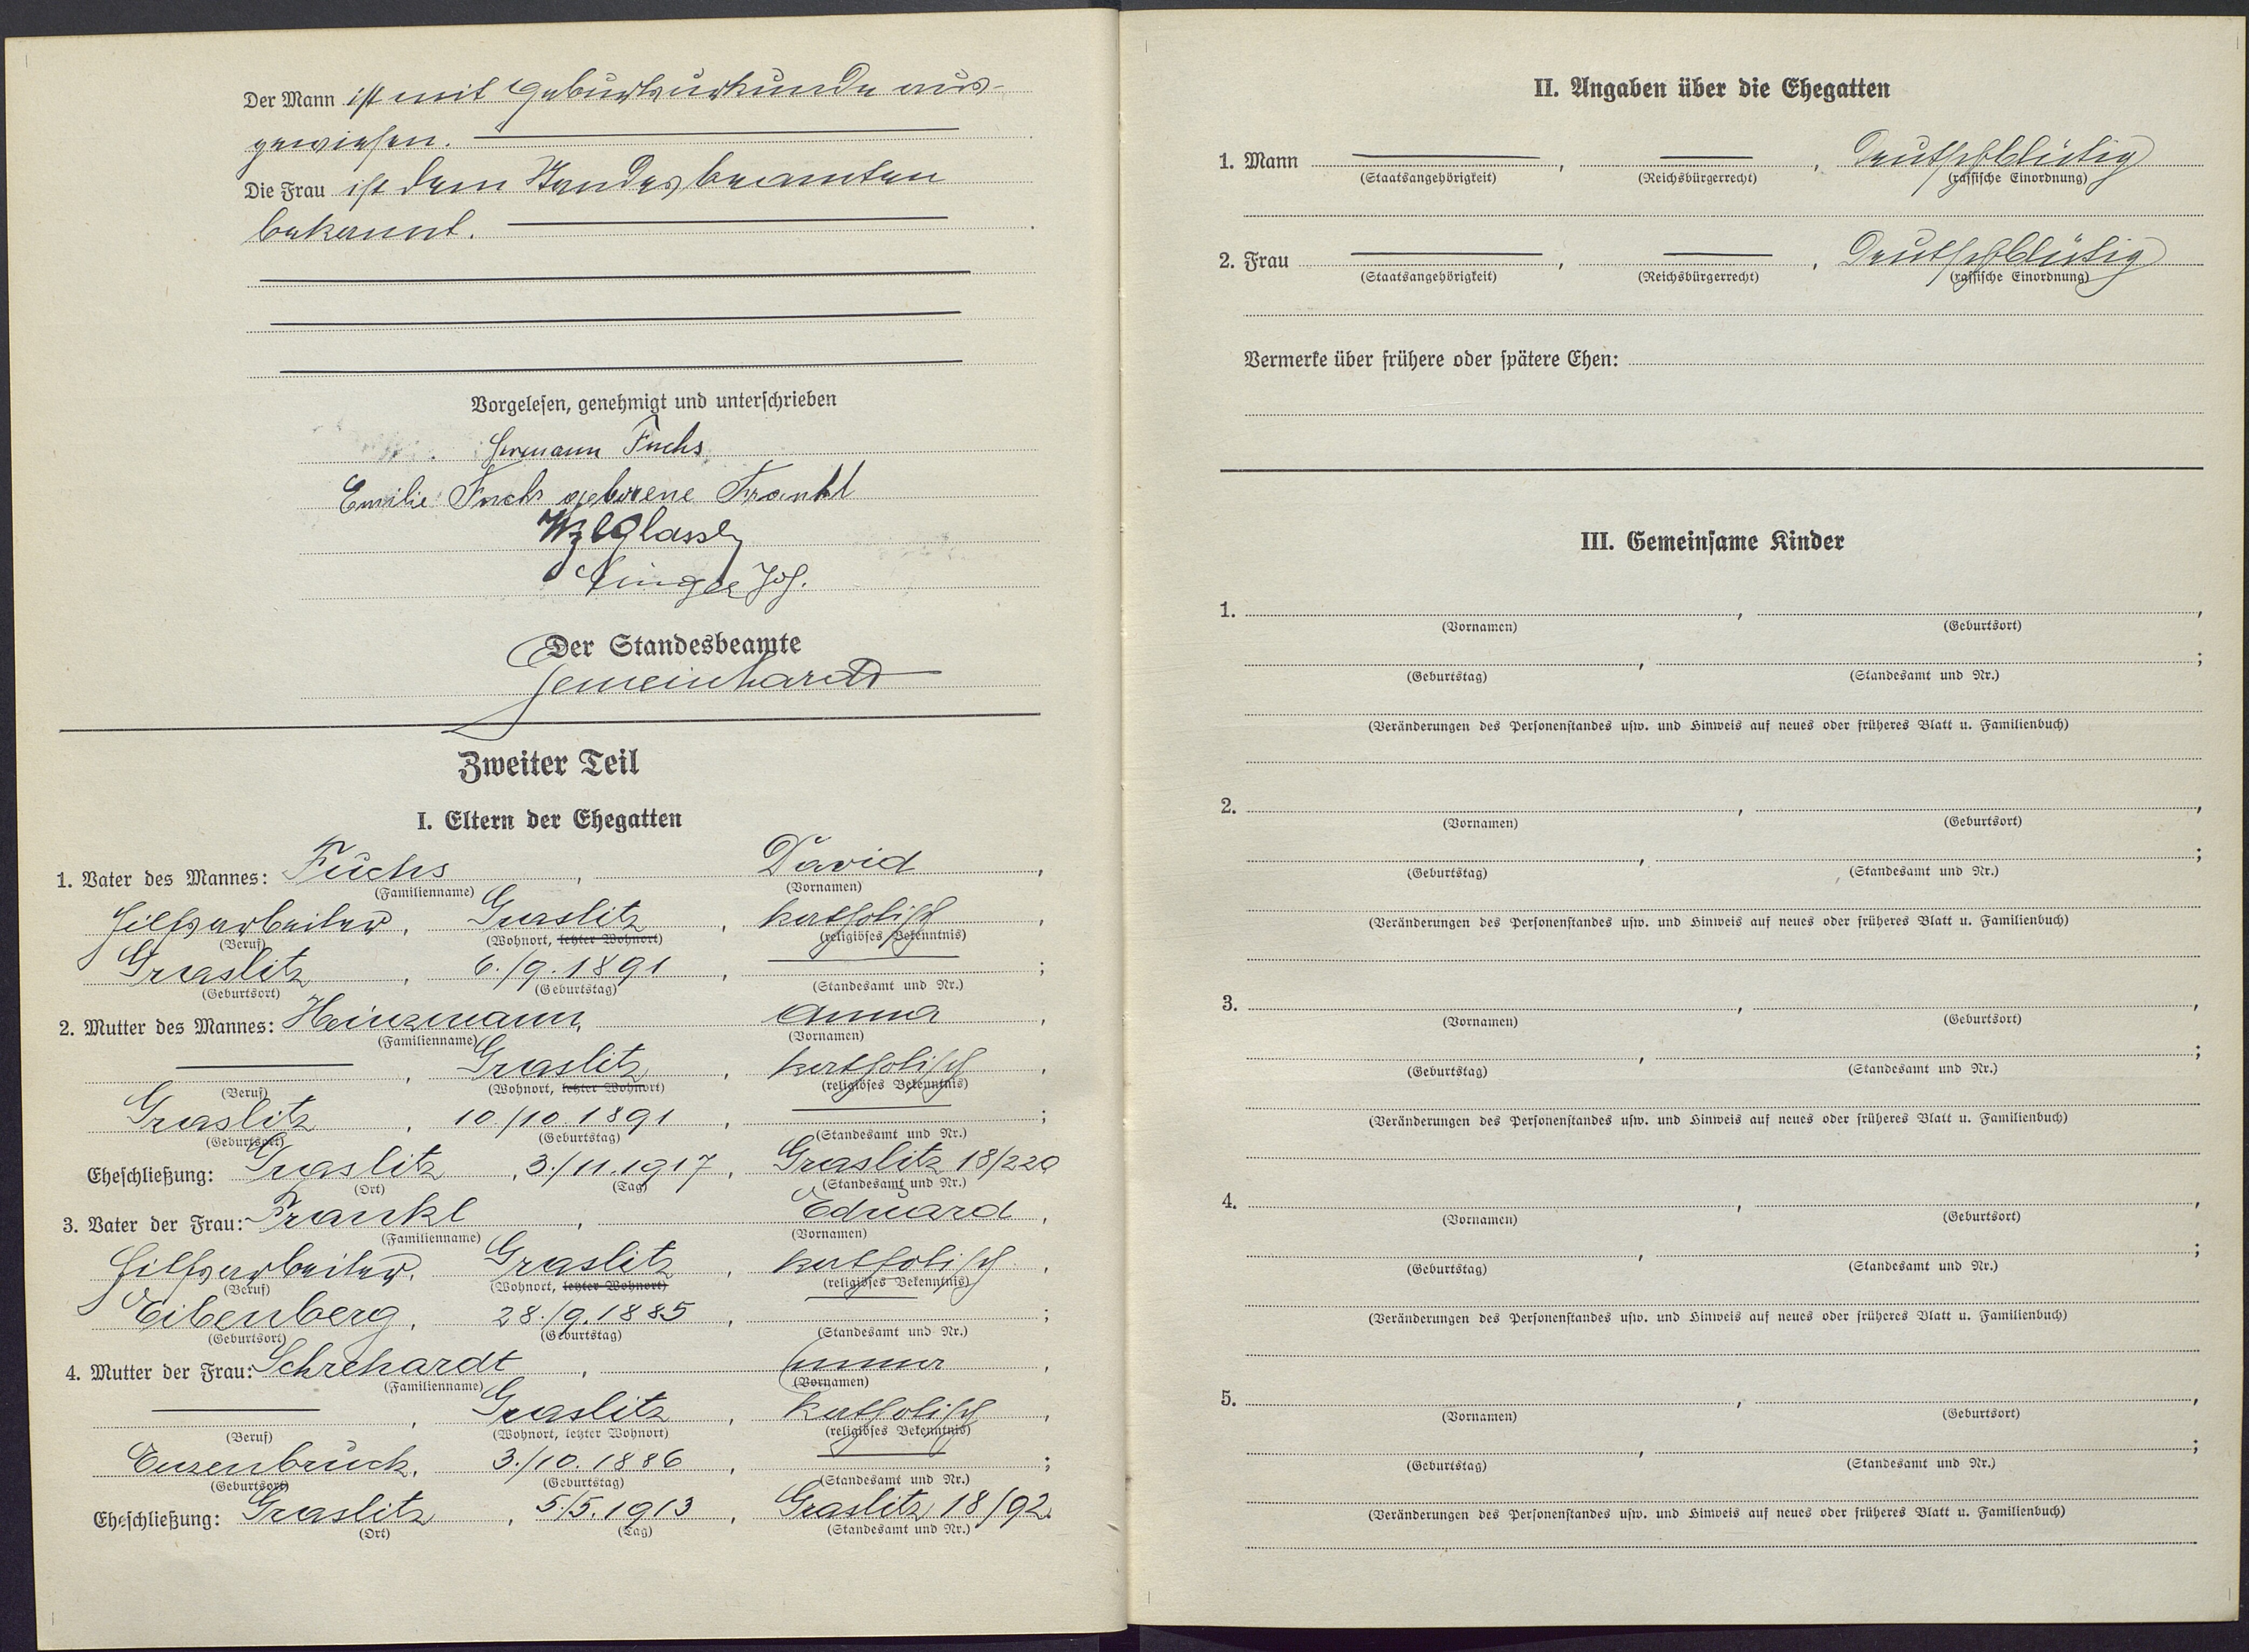 Der Mann ist mit Geburtsurkunde aus-
gewiesen.
Die Frau ist dem Standesbeamten
bekannt.
Vorgelesen, genehmigt und unterschrieben
Hermann Fuchs
Emilie Fuchs geborene Frankl
Der Standesbeamte
Gemeinhardt
Zweiter Teil
I. Eltern der Ehegatten
1. Vater des Mannes: Fuchs, David,
(Familienname) (Vornamen)
Hilfsarbeiter, Graslitz, katholisch,
(Beruf) (Wohnort, letzter Wohnort) (religiöses Bekenntnis)
Graslitz, 6./9.1891, ;
(Geburtsort) (Geburtstag) (Standesamt und Nr.)
2. Mutter des Mannes: Heinzmann, Anna,
(Familienname) (Vornamen)
, Graslitz, katholisch,
(Beruf) (Wohnort, letzter Wohnort) (religiöses Bekenntnis)
Graslitz, 10./10.1891, ;
(Geburtsort) (Geburtstag) (Standesamt und Nr.)
Eheschließung: Graslitz, 3./11.1917, Graslitz 18/220
(Ort) (Tag) (Standesamt und Nr.)
3. Vater der Frau: Frankl, Eduard,
(Familienname) (Vornamen)
Hilfsarbeiter, Graslitz, katholisch,
(Beruf) (Wohnort, letzter Wohnort) (religiöses Bekenntnis)
Eibenberg, 28./9.1885, ;
(Geburtsort) (Geburtstag) (Standesamt und Nr.)
4. Mutter der Frau: Schrehardt, Anna,
(Familienname) (Vornamen)
, Graslitz, katholisch,
(Beruf) (Wohnort, letzter Wohnort) (religiöses Bekenntnis)
3./10.1886, ;
(Geburtsort) (Geburtstag) (Standesamt und Nr.)
Eheschließung: Graslitz, 5./5.1913, Graslitz 18/92.
(Ort) (Tag) (Standesamt und Nr.)
II. Angaben über die Ehegatten
1. Mann , , Deutschblütig
(Staatsangehörigkeit) (Reichsbürgerrecht) (rassische Einordnung)
2. Frau , , Deutschblütig
(Staatsangehörigkeit) (Reichsbürgerrecht) (rassische Einordnung)
Vermerke über frühere oder spätere Ehen:
III. Gemeinsame Kinder
1. , ,
(Vornamen) (Geburtsort)
, ;
(Geburtstag) (Standesamt und Nr.)
(Veränderungen des Personenstandes usw. und Hinweis auf neues oder früheres Blatt u. Familienbuch)
2. , ,
(Vornamen) (Geburtsort)
, ;
(Geburtstag) (Standesamt und Nr.)
(Veränderungen des Personenstandes usw. und Hinweis auf neues oder früheres Blatt u. Familienbuch)
3. , ,
(Vornamen) (Geburtsort)
, ;
(Geburtstag) (Standesamt und Nr.)
(Veränderungen des Personenstandes usw. und Hinweis auf neues oder früheres Blatt u. Familienbuch)
4. , ,
(Vornamen) (Geburtsort)
, ;
(Geburtstag) (Standesamt und Nr.)
(Veränderungen des Personenstandes usw. und Hinweis auf neues oder früheres Blatt u. Familienbuch)
5. , ,
(Vornamen) (Geburtsort)
, ;
(Geburtstag) (Standesamt und Nr.)
(Veränderungen des Personenstandes usw. und Hinweis auf neues oder früheres Blatt u. Familienbuch)